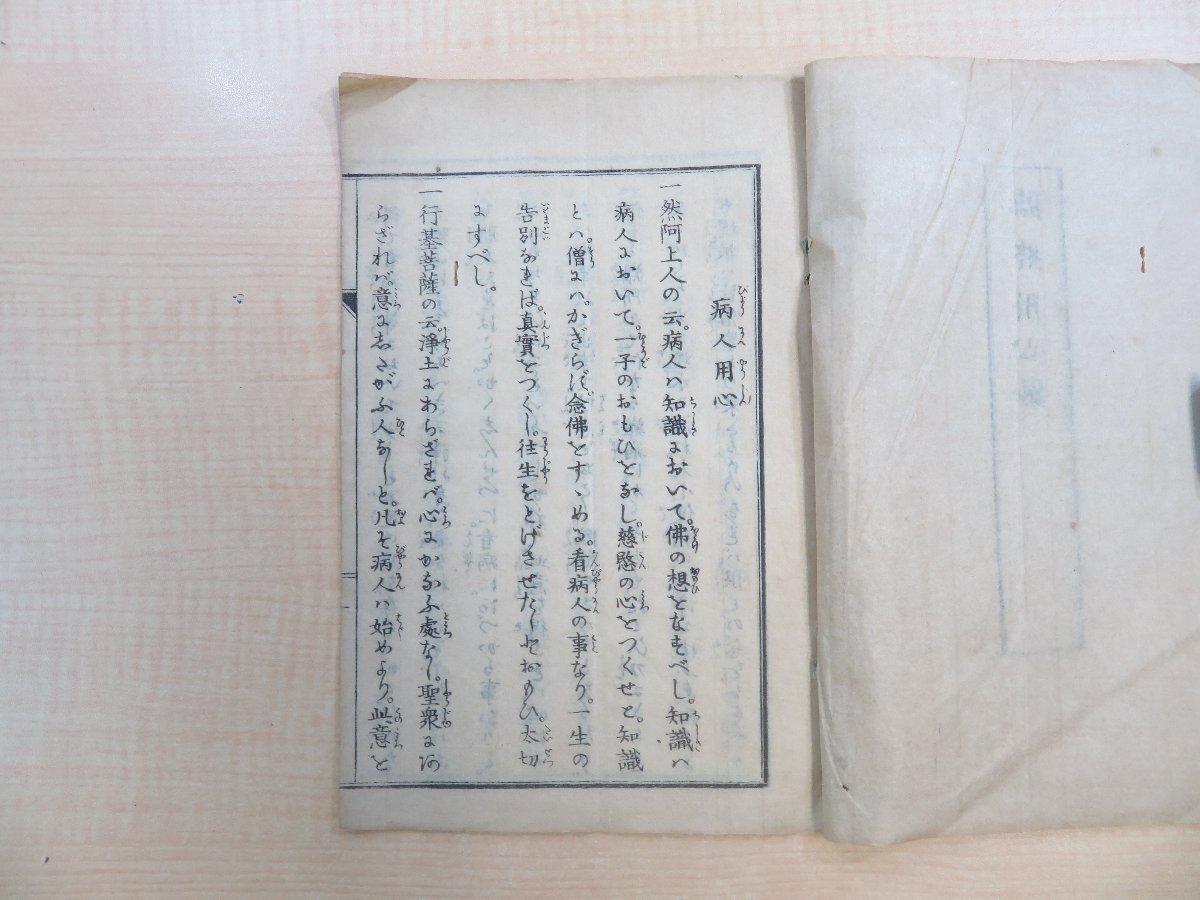 病人用心
一然阿上人の云。病人ハ知識において。佛の想をなすべし。知識ハ
病人において。一子のおもひをなし。慈愍の心をつくせと。知識
とハ。僧にハ。かぎらず念佛をすゝめる。看病人の事なり。一生の
告別なれば。真實をつくし。往生をとげさせたしとおもひ。太切
にすべし。
一行基菩薩の云。浄土にあらざれバ。心にかなふ處なし。聖衆にあ
らざれバ。意にしたがふ人なしと。凡そ病人ハ始めより。此意を